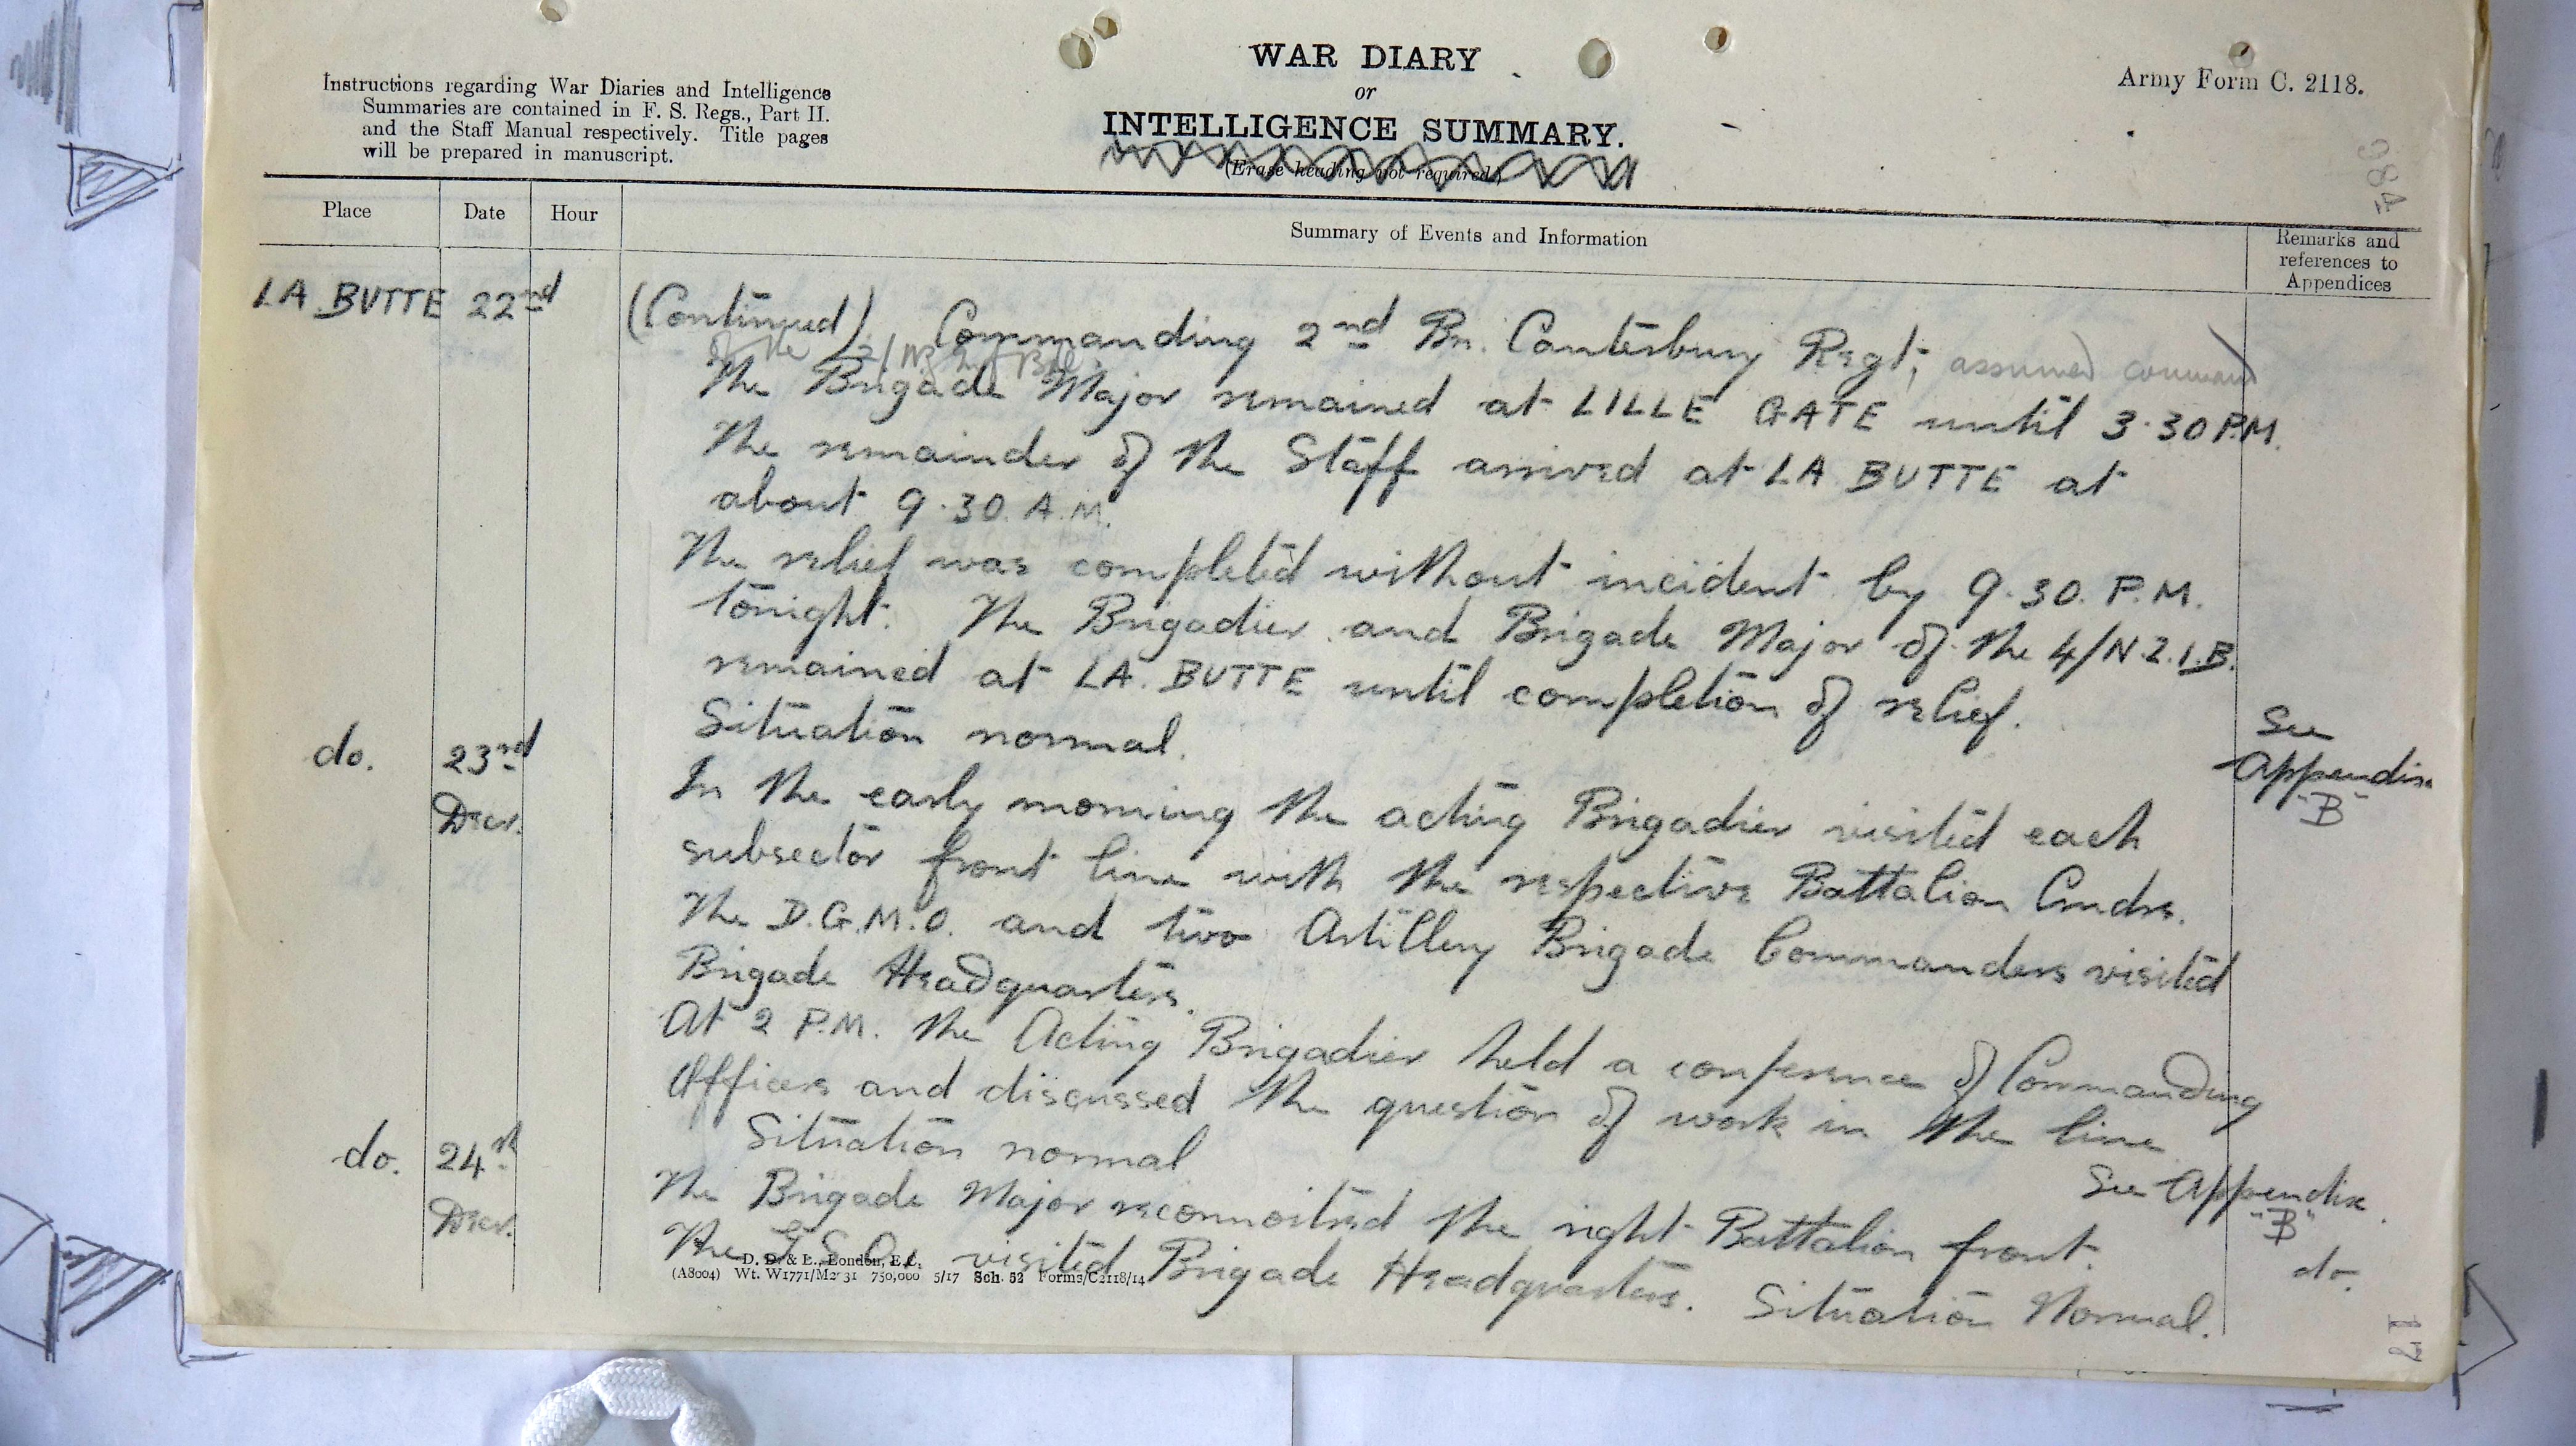 WAR DIARY
or
INTELLIGENCE SUMMARY.
(Erase heading not required.)
Army Form C. 2118.
Instructions regarding War Diaries and Intelligence
Summaries are contained in F. S. Regs., Part II.
and the Staff Manual respectively. Title pages
will be prepared in manuscript.
984
Place Date Hour Summary of Events and Information Remarks and
references to
Appendices
LA BUTTE 22nd (Continued) Commanding 2nd Bn. Canterbury Regt; assumed command
of the 2/NZ Inf Bde.
The Brigade Major remained at LILLE GATE until 3.30 P.M.
The remainder of the Staff arrived at LA BUTTE at
about 9.30 A.M.
The relief was completed without incident by 9.30. P.M.
tonight. The Brigadier and Brigade Major of the 4/N.Z.I.B.
remained at LA BUTTE until completion of relief.
Situation normal. See
Appendix
"B"
do. 23rd
Decr. In the early morning the acting Brigadier visited each
subsector front line with the respective Battalion Cmdrs.
The D.G.M.O. and two Artillery Brigade Commanders visited
Brigade Headquarters.
At 2 P.M. the Acting Brigadier held a conference of Commanding
Officers and discussed the question of work in the line
Situation normal See Appendix
"B"
do. 24th
Decr. The Brigade Major reconnoitred the right Battalion front.
The visited Brigade Headquarters. Situation Normal. do.
D. D. & L., London, E.C.
(A8004) Wt. W1771/M2 31 750,000 5/17 Sch. 52 Forms/C2118/14